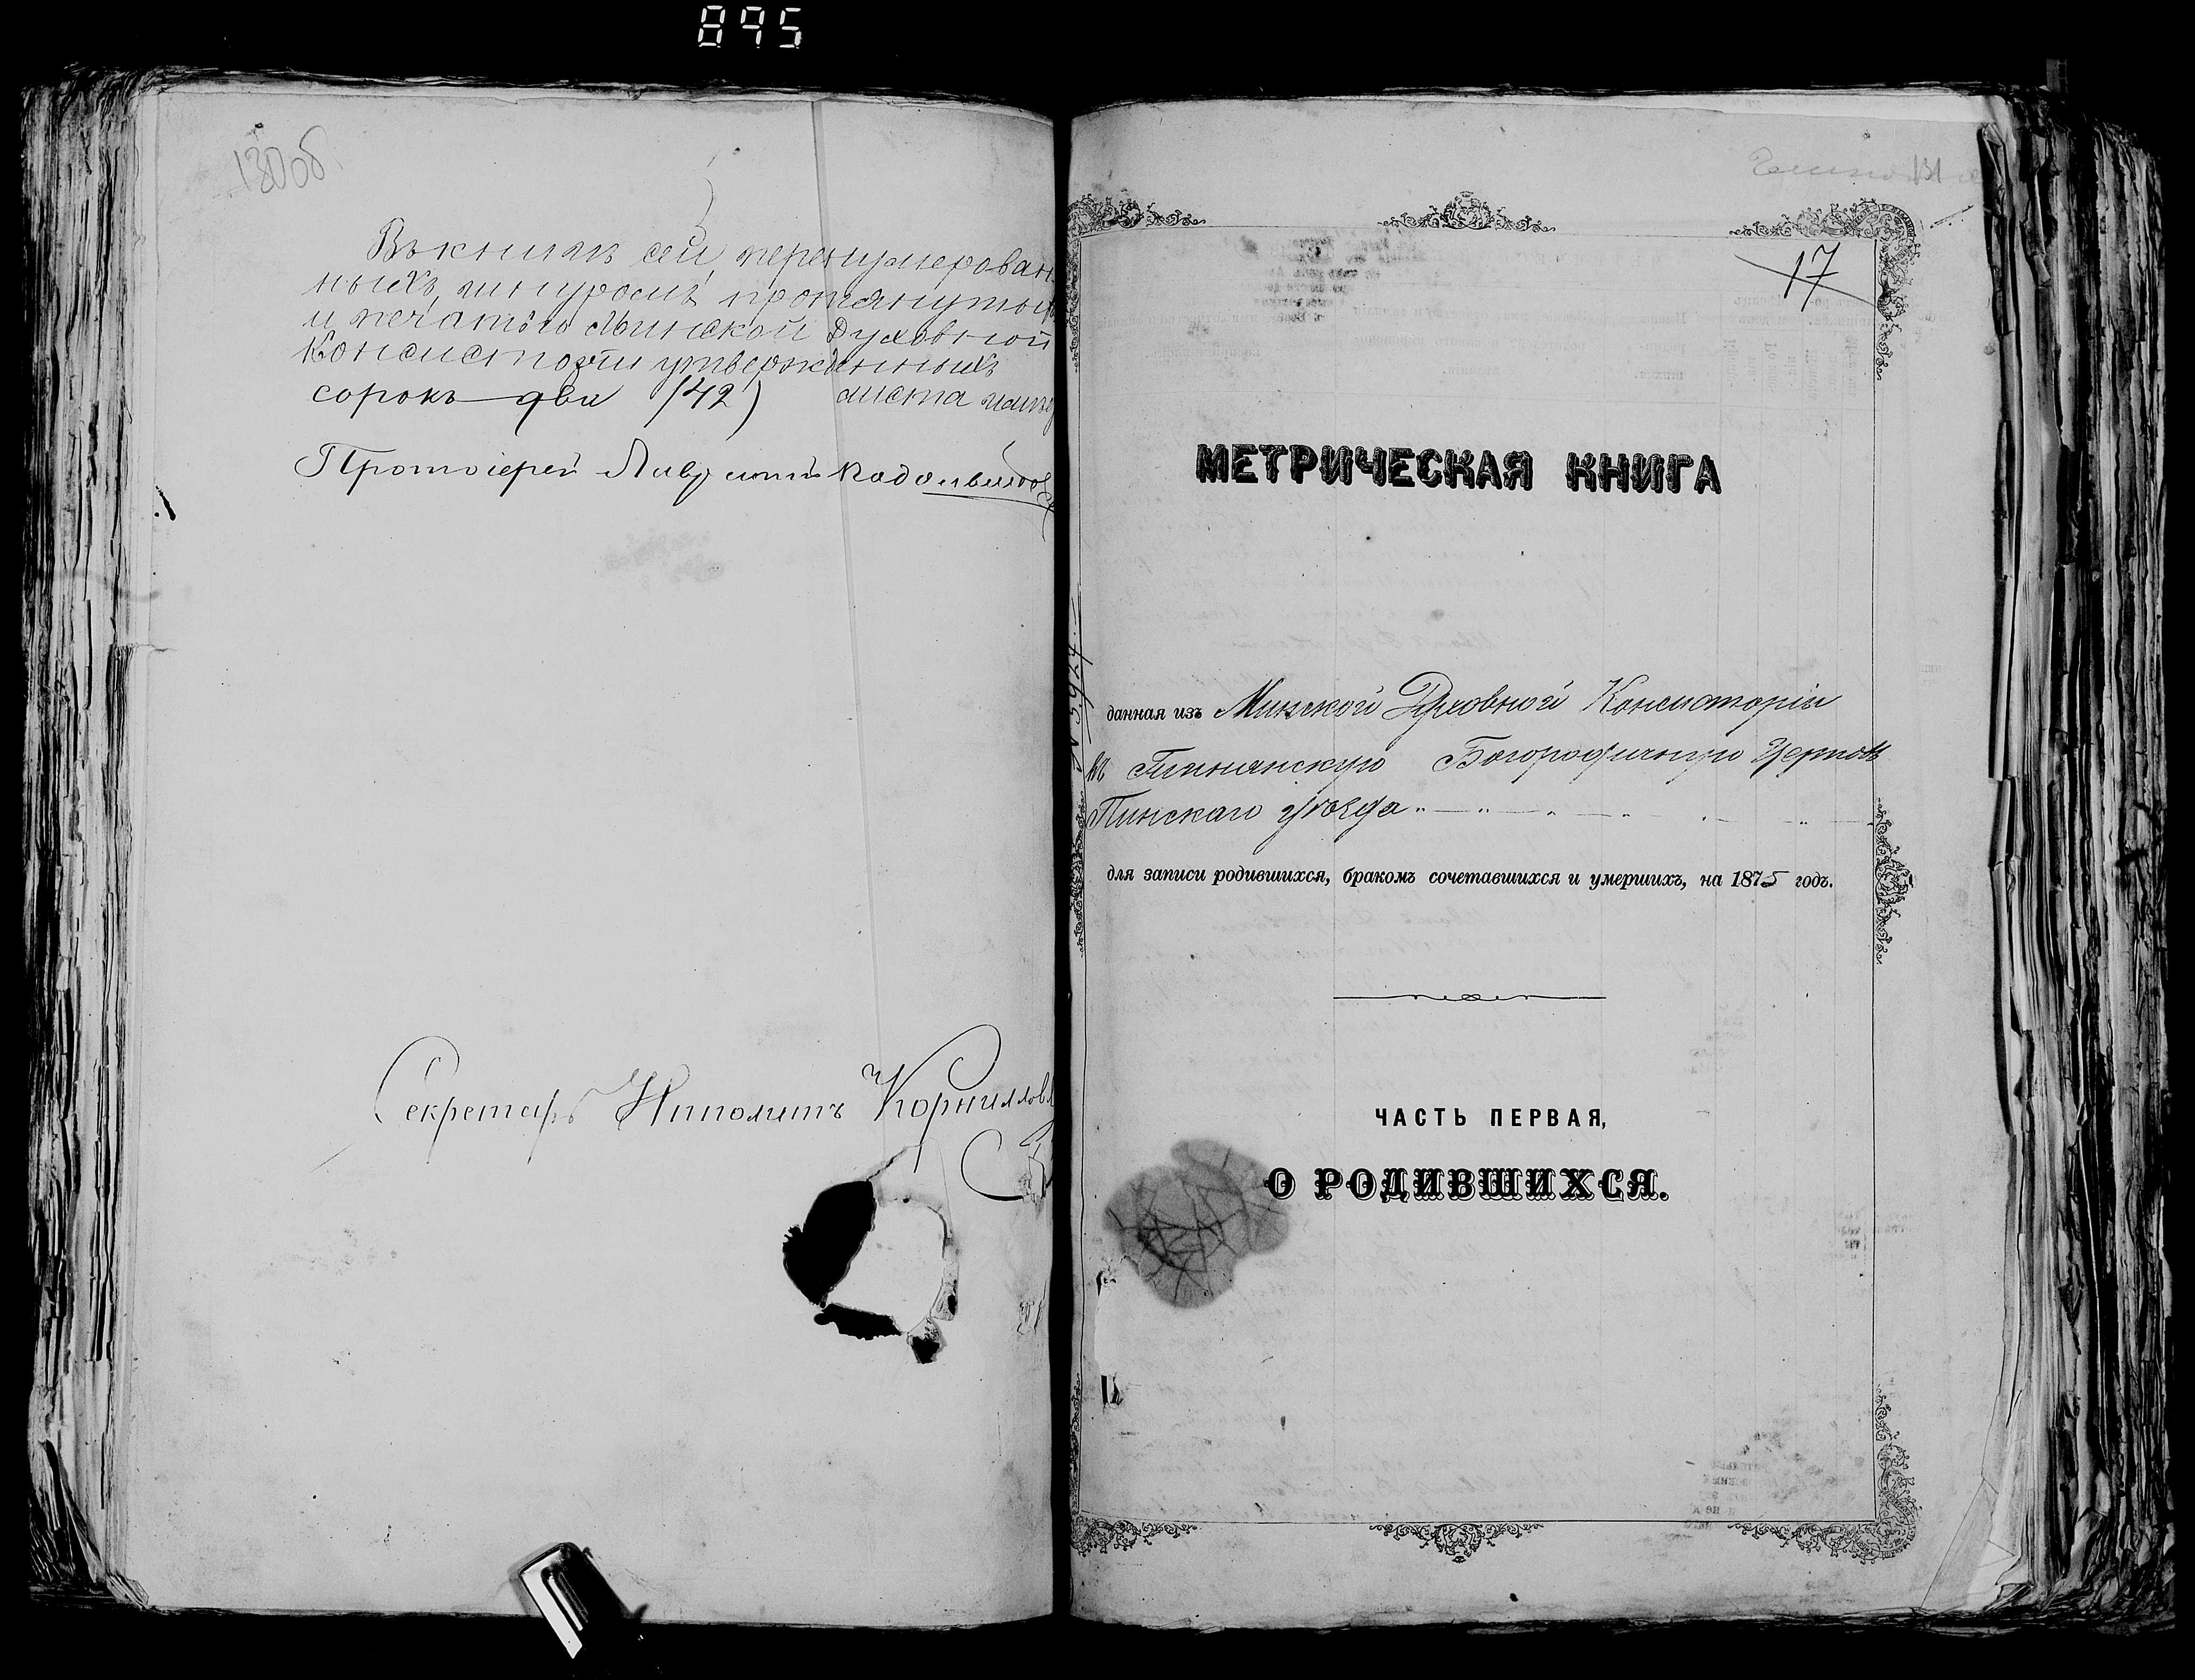 895
130об
Въ книгѣ сей, перенумерован
ныхъ, шнуромъ протянутыхъ
и печатью Минской Духовной
Консисторіи утвержденныхъ
сорокъ два (42) листа
Протоіерей
Секретарь Ипполитъ Корниллов
131
17
МЕТРИЧЕСКАЯ КНИГА
данная изъ Минской Духовной Консисторіи
въ Богородичную Церковь
Пинскаго уѣзда
для записи родившихся, бракомъ сочетавшихся и умершихъ, на 1875 годъ.
ЧАСТЬ ПЕРВАЯ,
О РОДИВШИХСЯ.